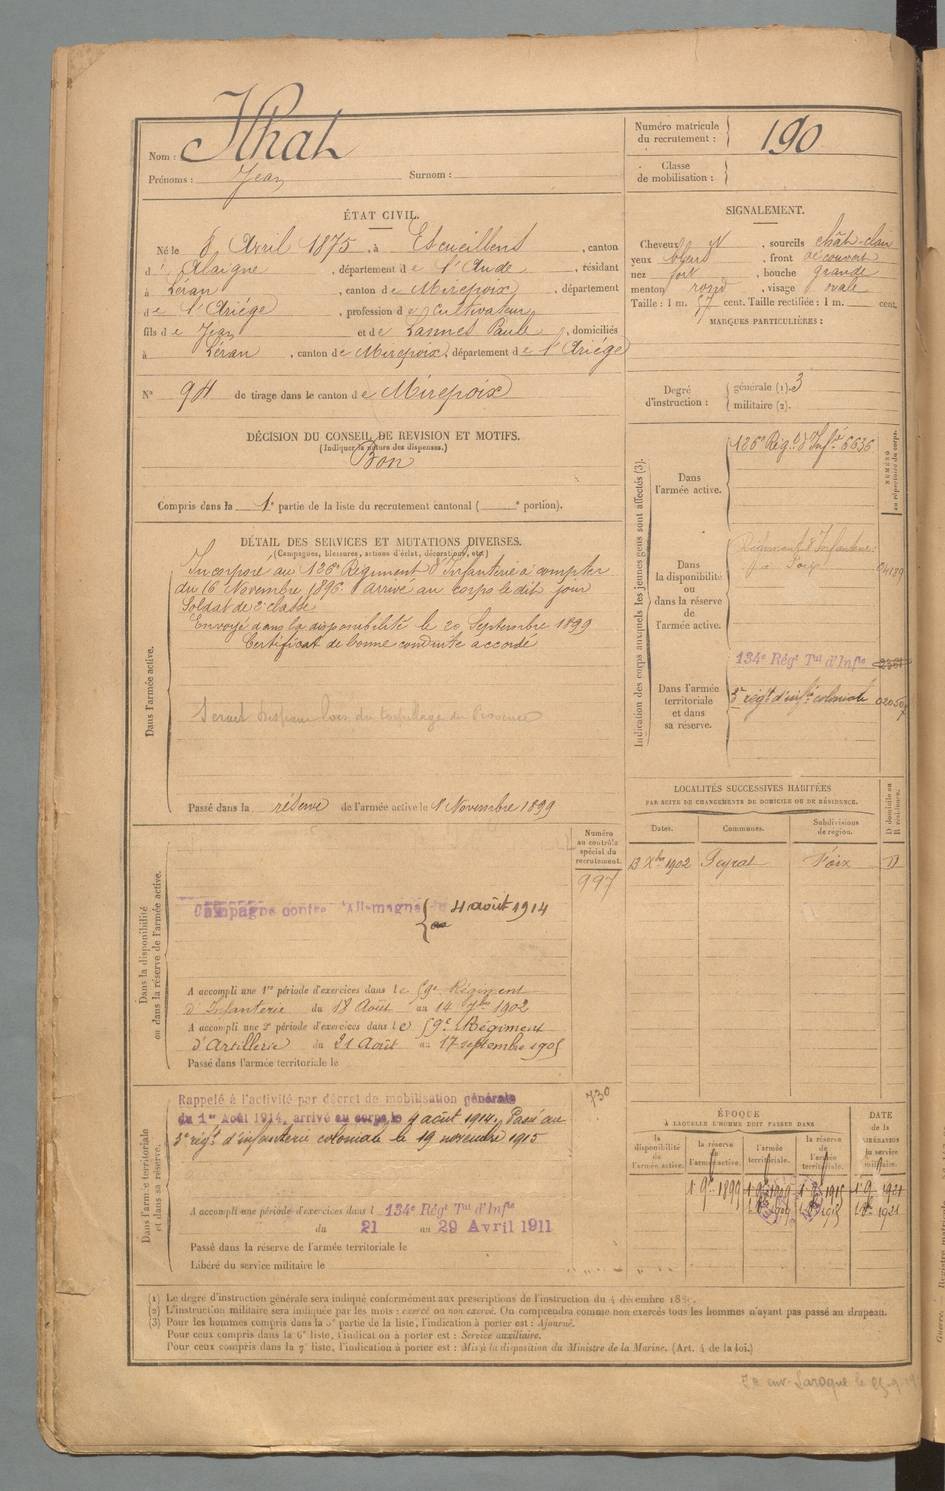 Nom : Ilhat
Prénoms : Jean Surnom :
Numéro matricule du recrutement : 190
Classe de mobilisation :
ÉTAT CIVIL.
Né le 8 Avril 1875, à Escueillens, canton
d' Alaigne, département de l'Aude, résidant
à Léran, canton de Mirepoix, département
de l'Ariége, profession de Cultivateur
fils de Jean et de Lannes Paule, domiciliés
à Léran, canton de Mirepoix, département de l'Ariége
N° 94 de tirage dans le canton de Mirepoix
DÉCISION DU CONSEIL DE REVISION ET MOTIFS.
(Indiquer la nature des dispenses.)
Bon
Compris dans la 1e partie de la liste du recrutement cantonal ( e portion).
SIGNALEMENT.
Cheveux N, sourcils chât-clair
yeux bleus, front découvert
nez fort, bouche grande
menton rond, visage ovale
Taille : 1 m. 57 cent. Taille rectifiée : 1 m. cent.
MARQUES PARTICULIÈRES :
Degré d'instruction : générale (1). 3
militaire (2).
DÉTAIL DES SERVICES ET MUTATIONS DIVERSES.
(Campagnes, blessures, actions d'éclat, décorations, etc.)
Dans l'armée active.
Incorporé au 126e Régiment d'Infanterie à compter
du 16 Novembre 1896. Arrivé au corps le dit jour
Soldat de 2e classe
Envoyé dans la disponibilité le 20 Septembre 1899
Certificat de bonne conduite accordé
Serait disparu lors du torpillage du Provence
Passé dans la réserve de l'armée active le 1 Novembre 1899
Indication des corps auxquels les jeunes gens sont affectés (3).
NUMÉRO au répertoire du corps.
Dans l'armée active.
126e Régt d'Infie 6636
Dans la disponibilité ou dans la réserve de l'armée active.
Régiment d'Infanterie
Foix 04189
134e Régt Tal d'Infie
Dans l'armée territoriale et dans sa réserve.
3e régt d'infie coloniale
LOCALITÉS SUCCESSIVES HABITÉES
PAR SUITE DE CHANGEMENTS DE DOMICILE OU DE RÉSIDENCE.
Dates. Communes. Subdivisions de région. D domicile ou R résidence.
13 Xbre 1902 Peyrat Foix D
Dans la disponibilité ou dans la réserve de l'armée active.
Numéro au contrôle spécial du recrutement.
997
Campagne contre l'Allemagne du 4 août 1914
au
A accompli une 1re période d'exercices dans le 59e Régiment
d'Infanterie du 18 Août au 14 7bre 1902
A accompli une 2e période d'exercices dans le 9e Régiment
d'Artillerie du 21 Août au 17 septembre 1905
Passé dans l'armée territoriale le
Dans l'armée territoriale et dans sa réserve.
730
Rappelé à l'activité par décret de mobilisation générale
du 1er Août 1914, arrivé au corps le 4 août 1914. Passé au
3e régt d'infanterie coloniale le 19 novembre 1915
A accompli une période d'exercices dans l 134e Régt Tal d'Infie
du 21 au 29 Avril 1911
Passé dans la réserve de l'armée territoriale le
Libéré du service militaire le
ÉPOQUE
À LAQUELLE L'HOMME DOIT PASSER DANS
la disponibilité de l'armée active.
la réserve de l'armée active.
l'armée territoriale.
la réserve de l'armée territoriale.
DATE de la LIBÉRATION du service militaire.
1 9bre 1899
(1) Le degré d'instruction générale sera indiqué conformément aux prescriptions de l'instruction du 4 décembre 18
(2) L'instruction militaire sera indiquée par les mots : exercé ou non exercé. On comprendra comme non exercés tous les hommes n'ayant pas passé au drapeau.
(3) Pour les hommes compris dans la 5e partie de la liste, l'indication à porter est : Ajourné.
Pour ceux compris dans la 6e liste, l'indication à porter est : Service auxiliaire.
Pour ceux compris dans la 7e liste, l'indication à porter est : Mis à la disposition du Ministre de la Marine. (Art. 4 de la loi.)